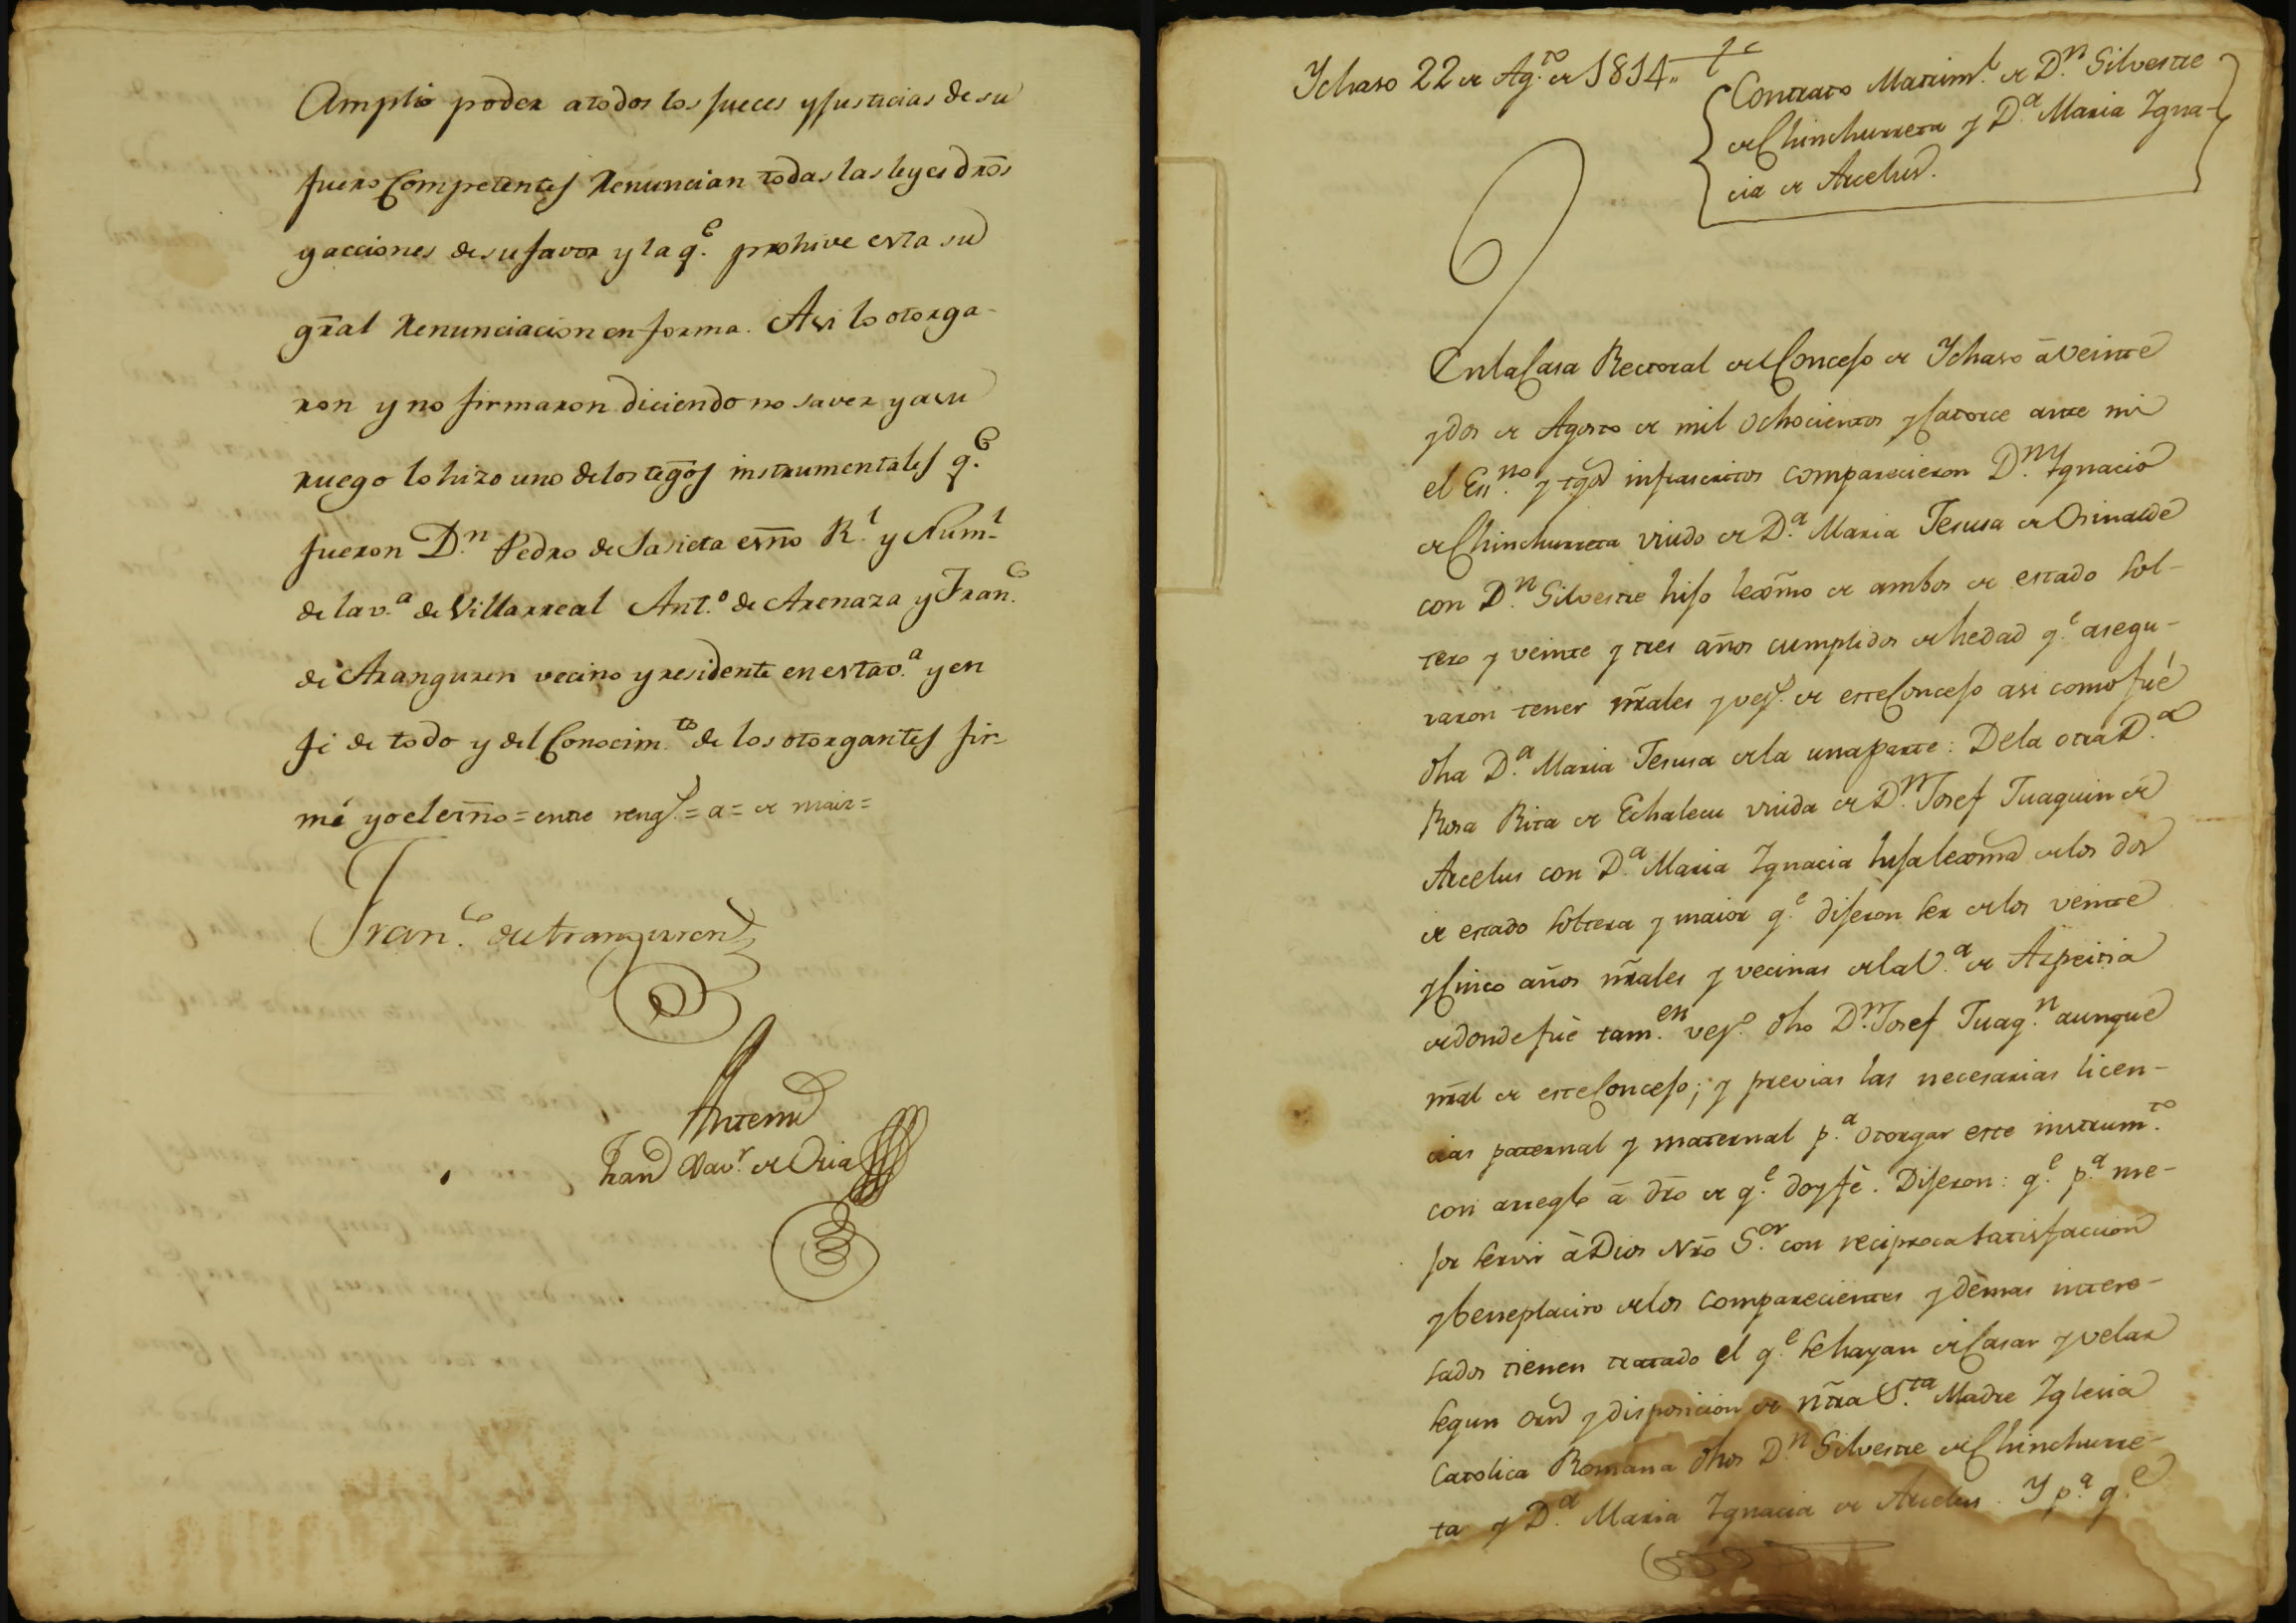 Amplio poder a todos los jueces y justicias de su
fuero Competentes Renuncian todas las leyes dr̃os
y acciones de su favor y la q.e prohive esta su
gr̃al Renunciacion en forma. Asi lo otorga-
ron y no firmaron diciendo no saver y a su
ruego lo hizo uno de los tegõs instrumentales q.e
fueron D.n Pedro de Sasieta esñno R.l y Num.l
de la v.a de Villarreal Ant.o de Arenaza y Fran.co
de Aranguren vecino y residente en esta v.a y en
fé de todo y del Conocim.to de los otorgantes fir-
mé yo el esñno = entre reng.s = a = de maio =
Fran.co de Aranguren
Ante mi
Fran.co Xav.r de Oria
Ychaso 22 de Ag.to de 1814..
Contrato Matrim.l de D.n Silvestre
de Chinchurreta y D.a Maria Igna-
cia de Arcelus.
En la Casa Rectoral del Concejo de Ychaso â veinte
y dos de Agosto de mil ochocientos y Catorce ante mi
el Ess.no y tgõs infrascritos comparecieron D.n Ygnacio
de Chinchurreta viudo de D.a Maria Jesusa de Orinalde
con D.n Silvestre hijo lexm̃o de ambos de estado sol-
tero y veinte y tres años cumplidos de hedad q.e asegu-
raron tener nr̃ales y vez.s de este Concejo asi como fué
dha D.a Maria Jesusa de la una parte: De la otra D.a
Rosa Rita de Echalecu viuda de D.n Josef Juaquin de
Arcelus con D.a Maria Ignacia hija lexm̃a de los dos
de estado soltera y maior q.e dijeron ser de los veinte
y Cinco años nr̃ales y vecinas de la V.a de Azpeitia
de donde fuè tam.en vez.o dho D.n Josef Juaq.n aunque
nr̃al de este Concejo; y previas las necesarias licen-
cias paternal y maternal p.a otorgar este instrum.to
con arreglo â dr̃o de q.e doy fè. Dijeron: q.e p.a me-
jor servir â Dios Nr̃o S.or con reciproca satisfaccion
y beneplacito de los comparecientes y demas intere-
sados tienen tratado el q.e se hayan de Casar y velar
segun orñ y disposicion de nr̃tra S.ta Madre Iglesia
Catolica Romana dhos D.n Silvestre de Chinchurre-
ta y D.a Maria Ignacia de Arcelus. Y p.a q.e